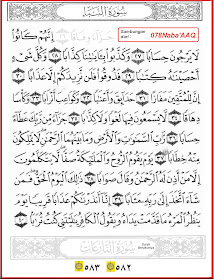 سُورَةُ النَّبَإِ
إِنَّهُمْ كَانُوا۟
Sambungan
dari :
078Naba'AAQ
لَا يَرْجُونَ حِسَابًا ٢٧ وَكَذَّبُوا۟ بِـَٔايَـٰتِنَا كِذَّابًا ٢٨ وَكُلَّ شَىْءٍ
أَحْصَيْنَـٰهُ كِتَـٰبًا ٢٩ فَذُوقُوا۟ فَلَن نَّزِيدَكُمْ إِلَّا عَذَابًا ٣٠
إِنَّ لِلْمُتَّقِينَ مَفَازًا ٣١ حَدَآئِقَ وَأَعْنَـٰبًا ٣٢ وَكَوَاعِبَ أَتْرَابًا ٣٣
وَكَأْسًا دِهَاقًا ٣٤ لَّا يَسْمَعُونَ فِيهَا لَغْوًا وَلَا كِذَّٰبًا ٣٥ جَزَآءً مِّن رَّبِّكَ عَطَآءً
حِسَابًا ٣٦ رَّبِّ ٱلسَّمَـٰوَٰتِ وَٱلْأَرْضِ وَمَا بَيْنَهُمَا ٱلرَّحْمَـٰنِ لَا يَمْلِكُونَ
مِنْهُ خِطَابًا ٣٧ يَوْمَ يَقُومُ ٱلرُّوحُ وَٱلْمَلَـٰٓئِكَةُ صَفًّا لَّا يَتَكَلَّمُونَ
إِلَّا مَنْ أَذِنَ لَهُ ٱلرَّحْمَـٰنُ وَقَالَ صَوَابًا ٣٨ ذَٰلِكَ ٱلْيَوْمُ ٱلْحَقُّ فَمَن
شَآءَ ٱتَّخَذَ إِلَىٰ رَبِّهِۦ مَـَٔابًا ٣٩ إِنَّآ أَنذَرْنَـٰكُمْ عَذَابًا قَرِيبًا يَوْمَ
يَنظُرُ ٱلْمَرْءُ مَا قَدَّمَتْ يَدَاهُ وَيَقُولُ ٱلْكَافِرُ يَـٰلَيْتَنِى كُنتُ تُرَٰبًۢا ٤٠
٥٨٣ ٥٨٢